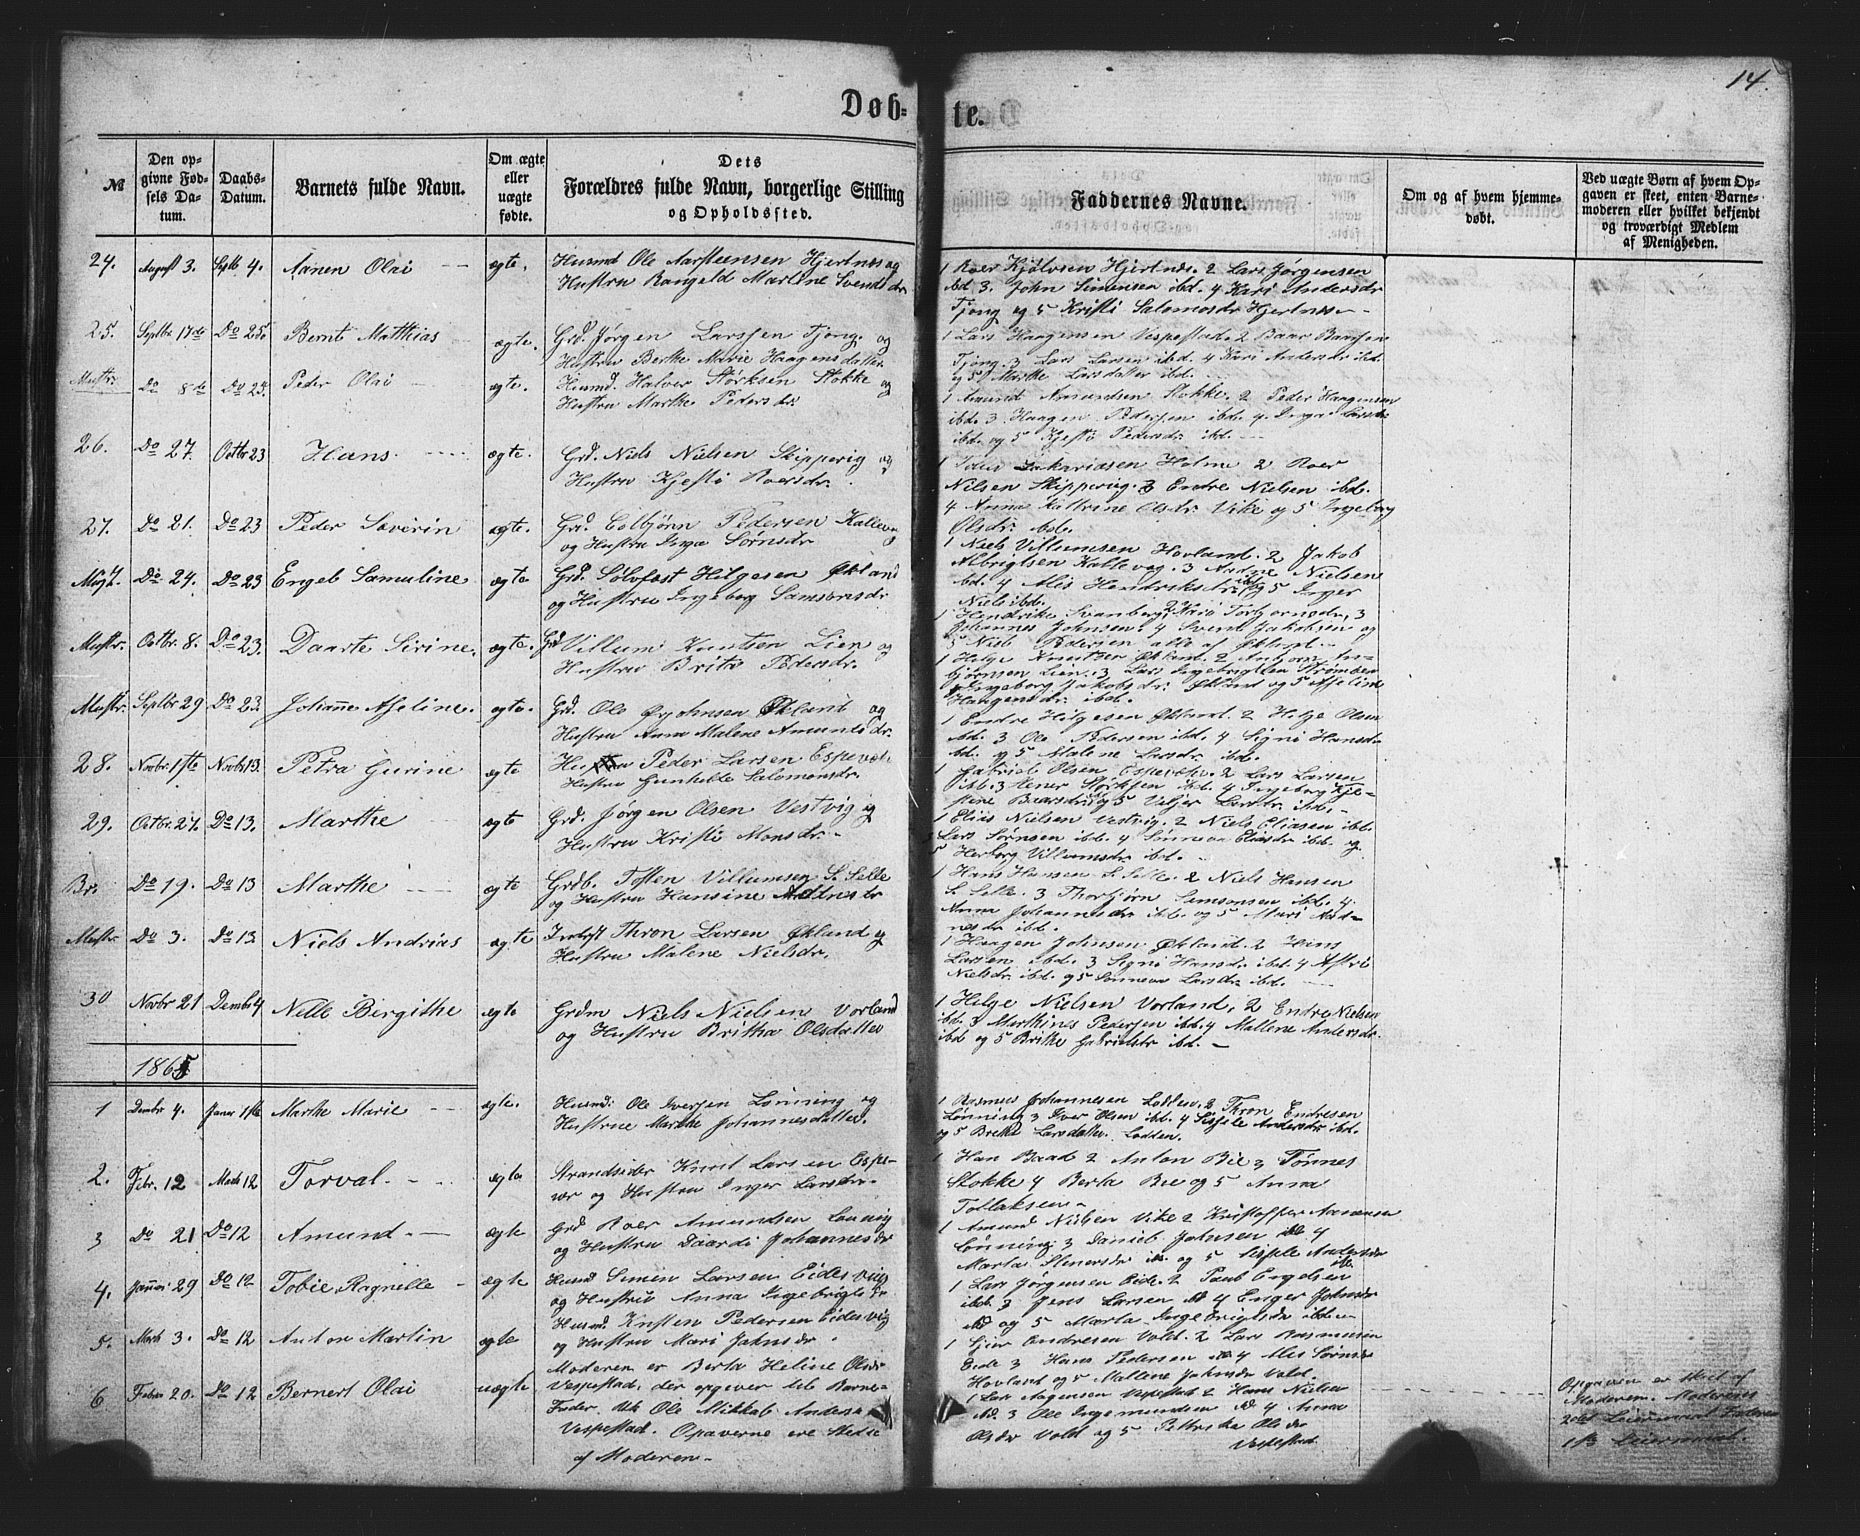 14.
Døb-
te.
№
Den opgivne Fødsels Datum.
Daabs-Datum.
Barnets fulde Navn.
Om ægte eller uægte fødte.
Dets
Forældres fulde Navn, borgerlige Stilling
og Opholdssted.
Faddernes Navne.
Om og af hvem hjemmedøbt.
Ved uægte Børn af hvem Opgaven er skeet, enten Barnemoderen eller hvilket bekjendt og troværdigt Medlem af Menigheden.
24. August 3. Septb 4. Aanen Olai ægte. Husmd Ole Aarsteensen Hjertnes og
Hustru Rangeld Martine Svendsdr
1 Roer Kjølvsen Hjertnes. 2 Lars Jørgensen
ibd 3. John Simensen ibd. 4 Kari Andersdr
Tjong og 5 Kristi Salomosdr Hjertnes
25. Septbr 17de Do 25de Bernt Matthias ægte. Grd. Jørgen Larssen Tjong og
Hustru Berthe Marie Haagensdatter
1 Lars Haagensen Vespestad. 2 Baar Baarsen
Tjong. 3 Lars Larsen ibd. 4 Kari Andersdr ibd.
og 5 Marthe Larsdatter ibd.
Mostr. Do 8de Do 25. Peder Olai ægte. Husmd. Halver Størksen Stokke og
Hustru Marthe Pedersdr
1 Amund Amundsen Stokke. 2 Peder Haagensen
ibd. 3 Haagen Pedersen ibd. 4. Inga Larsdr
ibd. og 5 Kjesti Pedersdr ibd.
26. Do 27. Octbr 23 Hans. ægte. Grd. Niels Nielsen Skippevig og
Hustru Kjesti Roersdr.
Zakariasen Holme 2 Roer
Nilsen Skippevig. 3 Endre Nielsen ibd.
4 Anna Kattrine Olsdr Vike og 5 Ingeborg
Olsdr. ibd.
27. Do 21. Do 23 Peder Severin ægte. Grd Colbjørn Pedersen Kallevog
og Hustru Inga Sørnsdr
1 Niels Villumsen Hovland. 2 Jakob
Albrigtsen Kallevog. 3 Nielsen
ibd. 4 Alis Hendriksdr ibd. og 5 Inger
Niels ibd.
Do 24. Do 23 Engel Samuline ægte Grd. Solvfast Hilgesen Økland
og Hustru Ingeborg Samsonsdr
1 Hendrike Svanberg, 2 Kari Torbjørnsdr, 3
Johannes Johnsen. 4 Svend Jakobsen og
5 Niels Pedersen alle af Økland.
Mostr. Octbr 8. Do 23. Daarte Sirine. ægte. Grd Villum Knutsen Lien og
Hustru Brita Pedersdr.
1 Helge Knutsen Økland. 2
bjørnsen Lien. 3 Lars Ingebrigtsen Strømøen
4 Ingeborg Jakobsdr. Økland og 5 Asseline
Haagensdr. ibd.
Mostr. Septbr 29 Do 23 Johanne Aseline. ægte. Grd. Ole Johnsen Økland og
Hustru Anna Malene Amundsdr.
1 Endre Hilgesen Økland. 2 Helje Olsen
ibd. 3 Ole Pedersen ibd. 4 Signi Hansdr
ibd. og 5 Malene Larsdr. ibd.
28. Novbr. 1ste Novbr 13. Petra Gurine ægte Peder Larsen Espevær
Hustru Gunhilde Salomonsdr.
1 Gabriel Olsen Espevær. 2 Lars Larsen
ibd. 3 Størksen ibd. 4 Ingeborg Kjestine Baarsdr ibd og 5 Larsdr. ibd.
29. Octbr. 27. Do 13. Marthe ægte Grd. Jørgen Olsen Vestvig og
Hustru Kristi Monsdr.
1 Elias Nielsen Vestvig. 2 Niels Eliasen ibd.
3 Lars Sørnsen ibd. 4 Sinnøva Eliasdr ibd. og
5 Herborg Villumsdr ibd.
Do 19. Do 13 Marthe ægte Grdb. Tosten Villumsen S. Selle
og Hustru Hansine
1 Hans Hansen S. Selle. 2 Niels Hansen
S. Selle. 3 Thorbjørn Simonsen ibd. 4.
Anna Johannesdr ibd. og 5 Mari
ibd.
Mostr. Do 3. Do 13 Niels Andrias ægte Inderst Thron Larsen Økland og
Hustru Malene Nielsdr.
1 Haagen Johnsen Økland. 2 Hans
Larsen ibd. 3 Signi Hansdr. ibd. 4 Astri
Nielsdr. ibd. og 5 Larsdr. ibd.
30 Novbr 21 Dembr 4 Nelle Birgithe ægte Grdm Niels Nielsen Vorland
og Hustru Britha Olsdatter
1 Helge Nielsen Vorland, 2 Endre Nielsen
ibd. 3 Marthines Pedersen ibd. 4 Mallene Andersdr.
ibd og 5 Brithe Gabrielsdr ibd.
1865
1 Dembr 4. Januar 1ste Marthe Marie ægte. Husmd: Ole Iversen Lønning og
Hustrue Marthe Johannesdatter.
1 Rasmus Johannesen Lodden. 2 Thron Endresen
Lønning 3 Iver Olsen ibd. 4 Sissele Andersdr ibd.
og 5 Brithe Larsdatter Lodden.
2. Febr. 12 Marts 12 Torval ægte Strandsider Knut Larsen Espevær og Hustru Inger Larsdr.
1 Han Baade 2 Anton Bie 3 Tønnes
Stokke 4 Berta Bie og 5 Anna
Tollaksen
3 Do 21 Do 12 Amund ægte Grd Roer Amundsen Lønning
og Hustru Daardi Johannesdr
1 Amund Nielsen Vike 2 Kristoffer Aanensen
Lønning. 3 Daniel Johnsen ibd 4
Marta Steensdr ibd. og 5 Sissele Andersdr
ibd
4. Januar 29 Do 12 Tobie Ragnelle ægte Husmd Simen Larsen Eidesvig
og Hustru Anna Ingebrigtsdr
1 Lars Jørgensen Eide. 2 Paul Engelsen
ibd. 3 Jens Larsen ibd 4 Enger Johnsdr
ibd og 5 Marta Ingebrigtsdr ibd.
5. Marts 3. Do 12 Anton Martin ægte Husmd Knsten Pedersen Eidesvig
og Hustru Mari Johnsdr
1 Gjer Andresen Vold. 2 Lars Rasmusen
Eide 3 Hans Pedersen ibd 4 Alis Sørnsdr
Hovland og 5 Mallene Johnsdr Vold.
6 Febr 20. Do 12 Bernert Olai uægte Moderen er Berta Heline Olsdr
Vespestad, der opgiver til Barnefader, Ole Mikkal Andersen
Vespestad. Opgaverne ere skede
af Moderen.
1 Lars Aagensen Vespestad 2 Hans Nielsen
ibd. 3 Ole Ingemundsen ibd 4 Anna
Olsdr Vold og 5 Pettrike Olsdr
Vespestad.
Opgaven er skeet af
Moderen. Moderens
2det Leiermaal. Faderens
1ste Leiermaal.